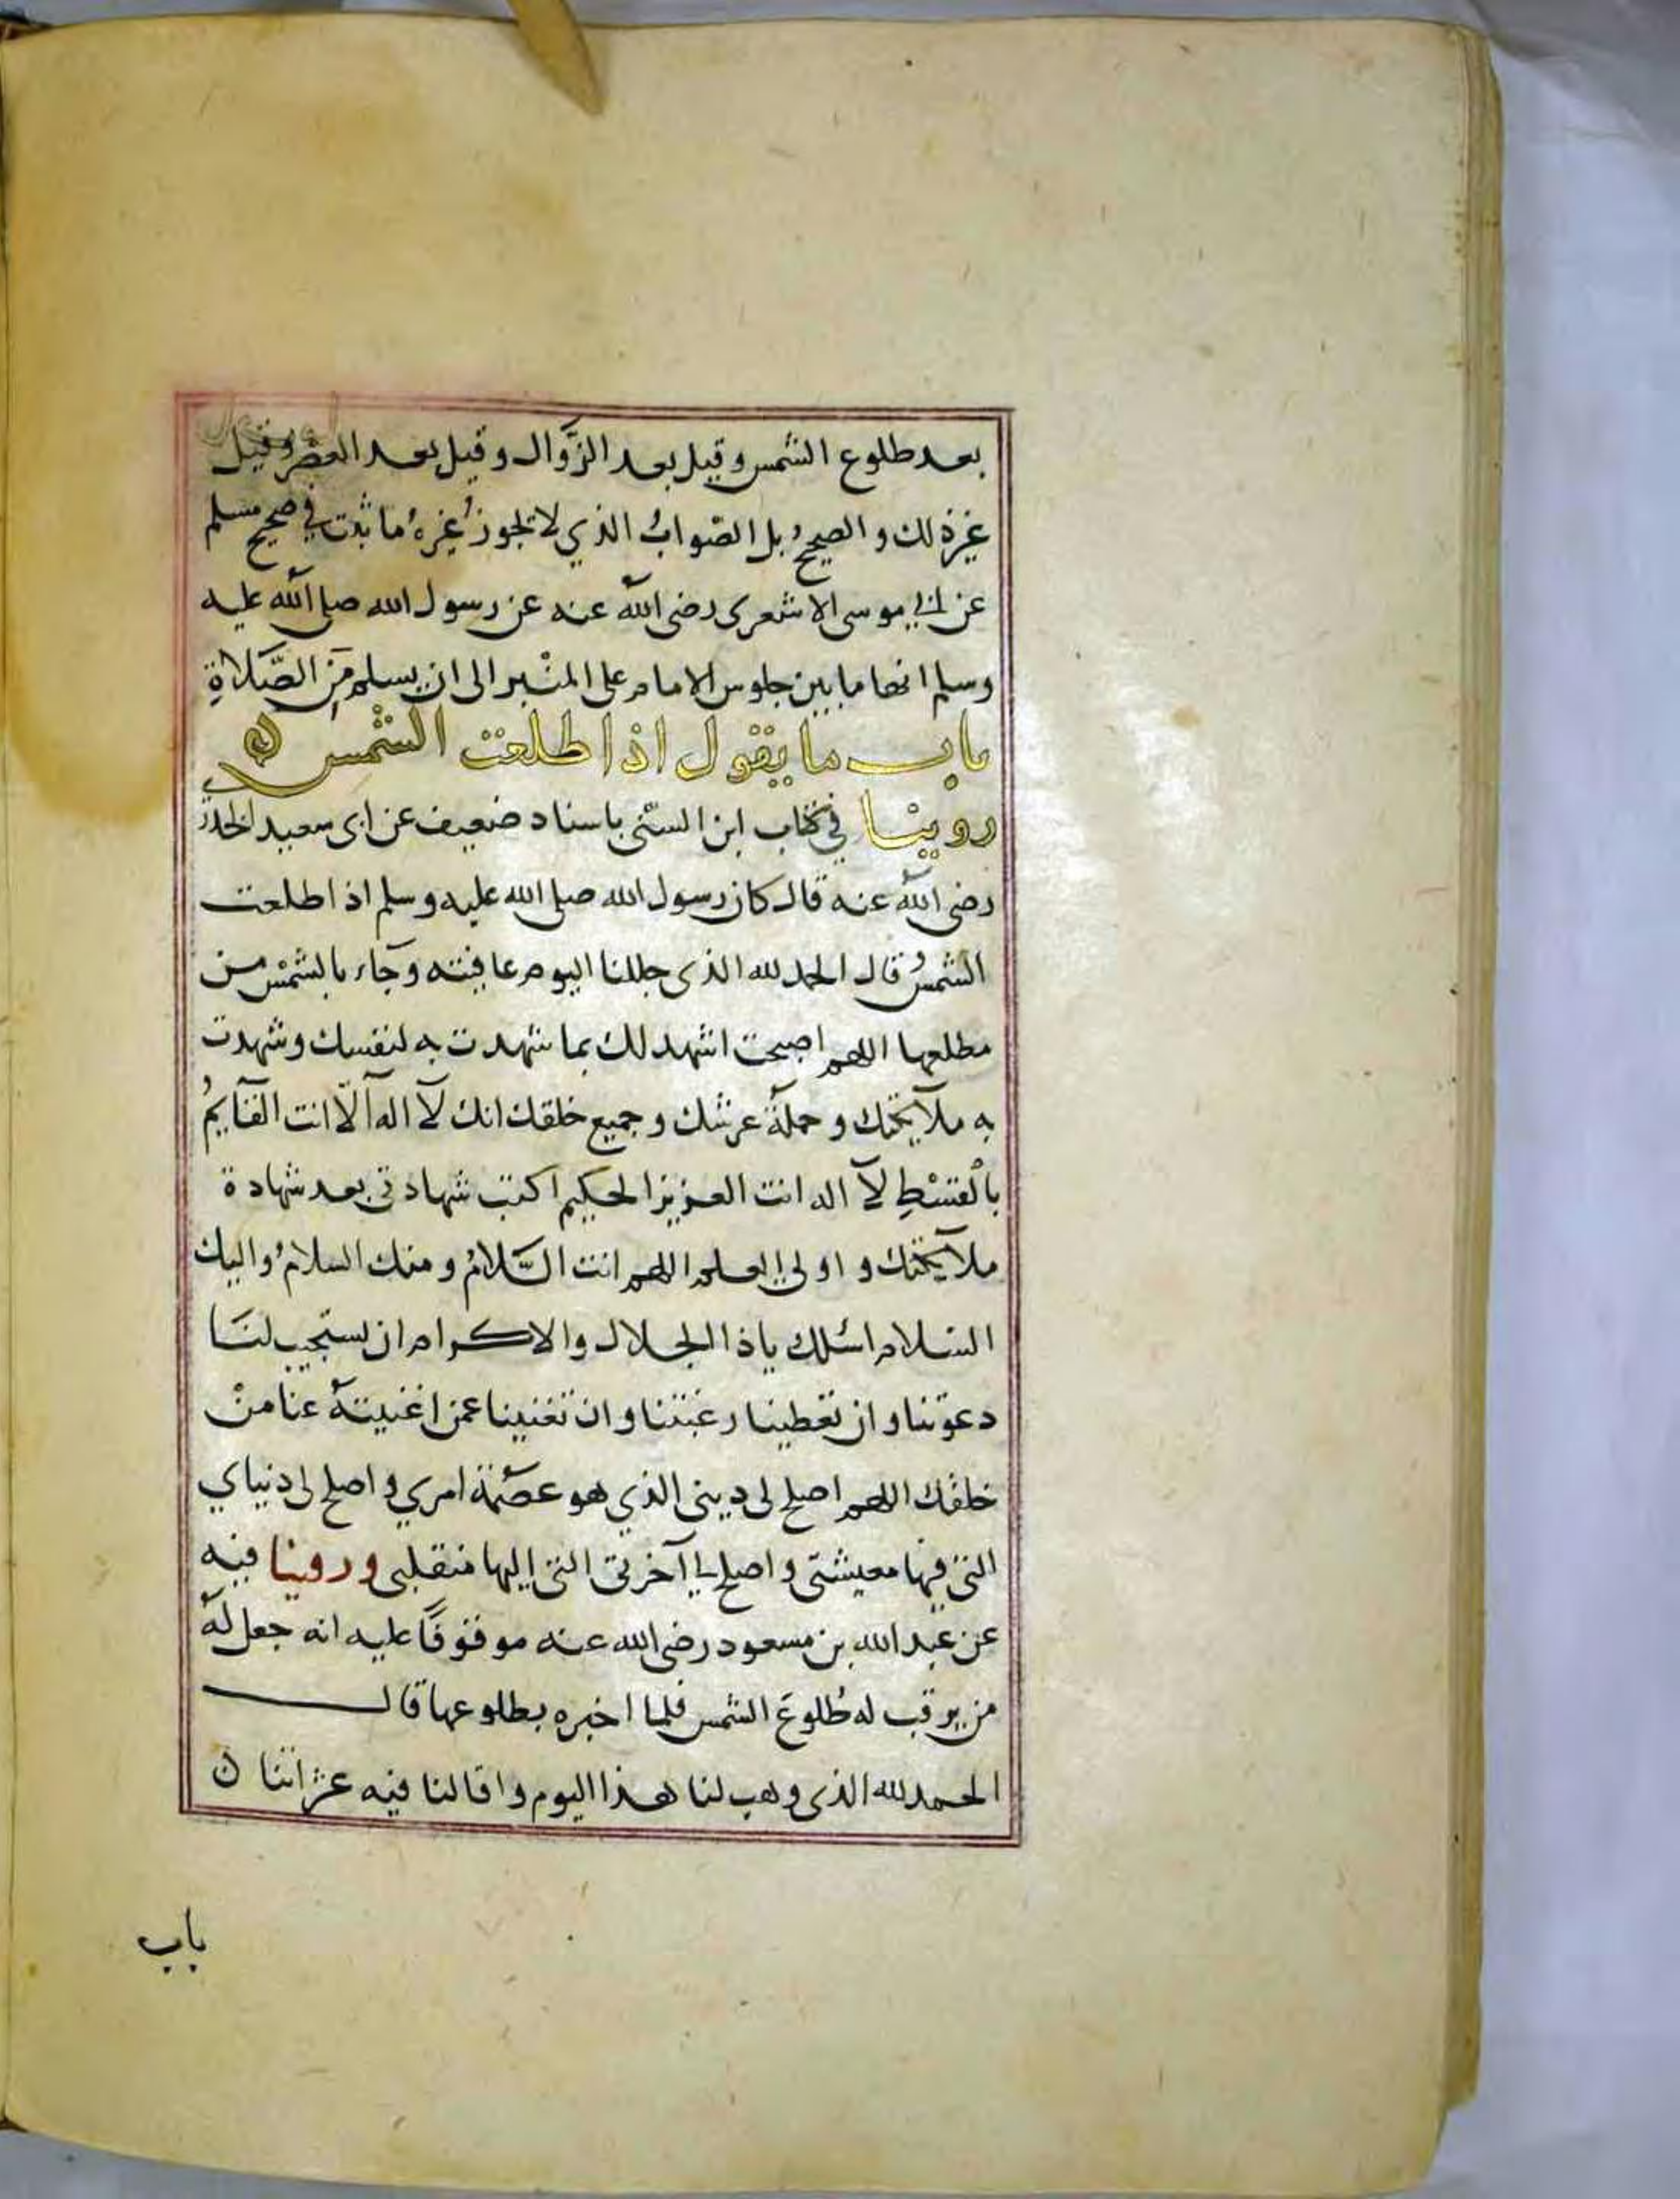 بعد طلوع الشمس وقيل بعد الزوال وقيل بعد العصر وقيل
غير ذلك والصحيح بل الصواب الذي لا يجوز غيره ما ثبت في صحيح مسلم
عن ابي موسى الاشعرى رضى الله عنه عن رسول الله صلى الله عليه
وسلم انها ما بين جلوس الامام على المنبر الى ان يسلم من الصلاة
باب ما يقول اذا طلعت الشمس
روينا في كتاب ابن السنى باسناد ضعيف عن ابى سعيد الخدرى
رضى الله عنه قال كان رسول الله صلى الله عليه وسلم اذا طلعت
الشمس قال الحمد لله الذى جللنا اليوم عافيته وجاء بالشمس من
مطلعها اللهم اصبحت اشهد لك بما شهدت به لنفسك وشهدت
به ملآيكتك وحملة عرشك وجميع خلقك انك لآ اله آلا انت القآيم
بالقسط لآ اله انت العزيز الحكيم اكتب شهادتى بعد شهادة
ملآيكتك واولي العلم اللهم انت السلام ومنك السلام واليك
السلام اسئلك ياذا الجلال والاكرام ان تستجيب لنا
دعوتنا وان تعطينا رغبتنا وان تغنينا عمن اغنيته عنا من
خلقك اللهم اصلح لى دينى الذي هو عصمة امري واصلح لى دنياي
التى فيها معيشتى واصلح لي آخرتى التى اليها منقلبى وروينا فيه
عن عبد الله بن مسعود رضى الله عنه موقوفا عليه انه جعل له
من يرقب له طلوع الشمس فلما اخبره بطلوعها قال
الحمد لله الذى وهب لنا هذا اليوم واقالنا فيه عثراتنا ن
باب